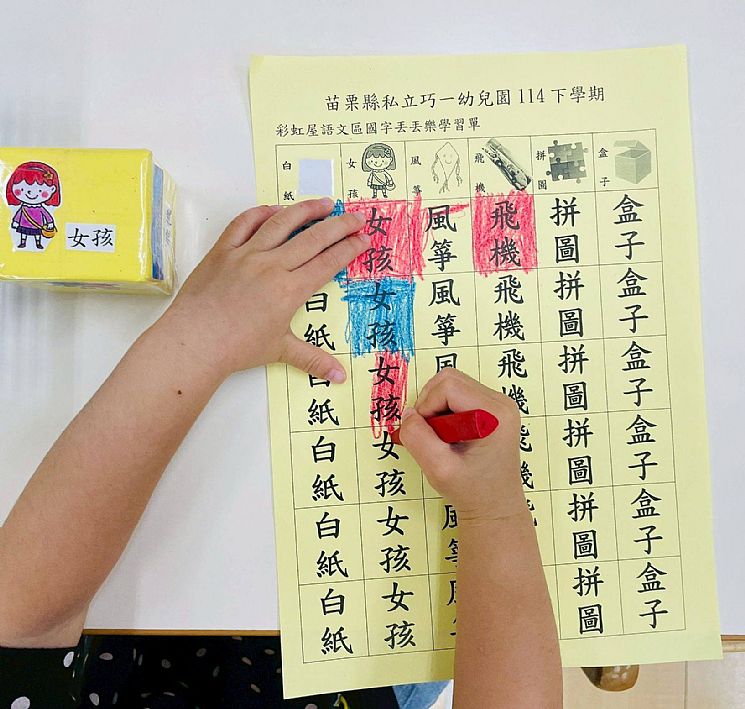 苗栗縣私立巧一幼兒園114下學期
彩虹屋語文區國字丟丟樂學習單
白紙 女孩 風箏 飛機 拼圖 盒子
女孩 風箏 飛機 拼圖 盒子
白紙 女孩 風箏 飛機 拼圖 盒子
白紙 女孩 風 飛機 拼圖 盒子
白紙 女孩 機 拼圖 盒子
白紙 女孩 風箏 拼圖 盒子
白紙 女孩 拼圖 盒子
女孩